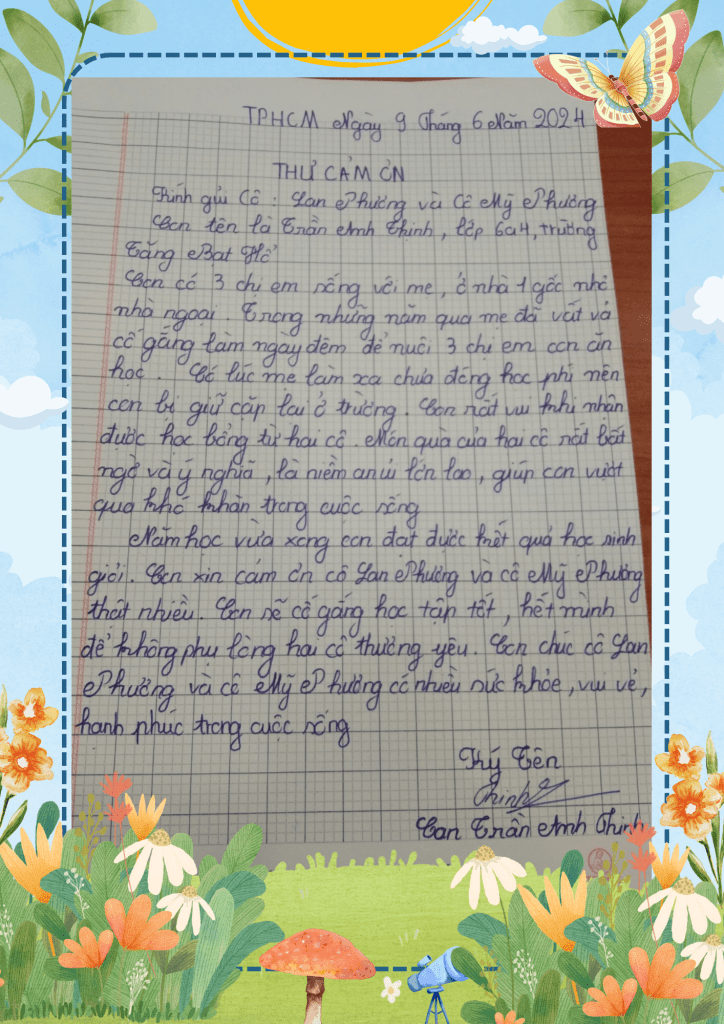 TPHCM Ngày 9 Tháng 6 Năm 2024
THƯ CẢM ƠN
Kính gửi Cô : Lan Phương và Cô Mỹ Phương
Con tên là Trần Anh Thịnh, lớp 6a4, trường
Tăng Bạt Hổ
Con có 3 chị em sống với mẹ, ở nhà 1 góc nhỏ
nhà ngoại. Trong những năm qua mẹ đã vất vả
cố gắng làm ngày đêm để nuôi 3 chị em con ăn
học. Có lúc mẹ làm xa chưa đóng học phí nên
con bị giữ cặp lại ở trường. Con rất vui khi nhận
được học bổng từ hai cô. Món quà của hai cô rất bất
ngờ và ý nghĩa, là niềm an ủi lớn lao, giúp con vượt
qua khó khăn trong cuộc sống
Năm học vừa xong con đạt được kết quả học sinh
giỏi. Con xin cám ơn cô Lan Phương và cô Mỹ Phương
thật nhiều. Con sẽ cố gắng học tập tốt, hết mình
để không phụ lòng hai cô thương yêu. Con chúc cô Lan
Phương và cô Mỹ Phương có nhiều sức khỏe, vui vẻ,
hạnh phúc trong cuộc sống
Ký Tên
Thịnh
Con Trần Anh Thịnh